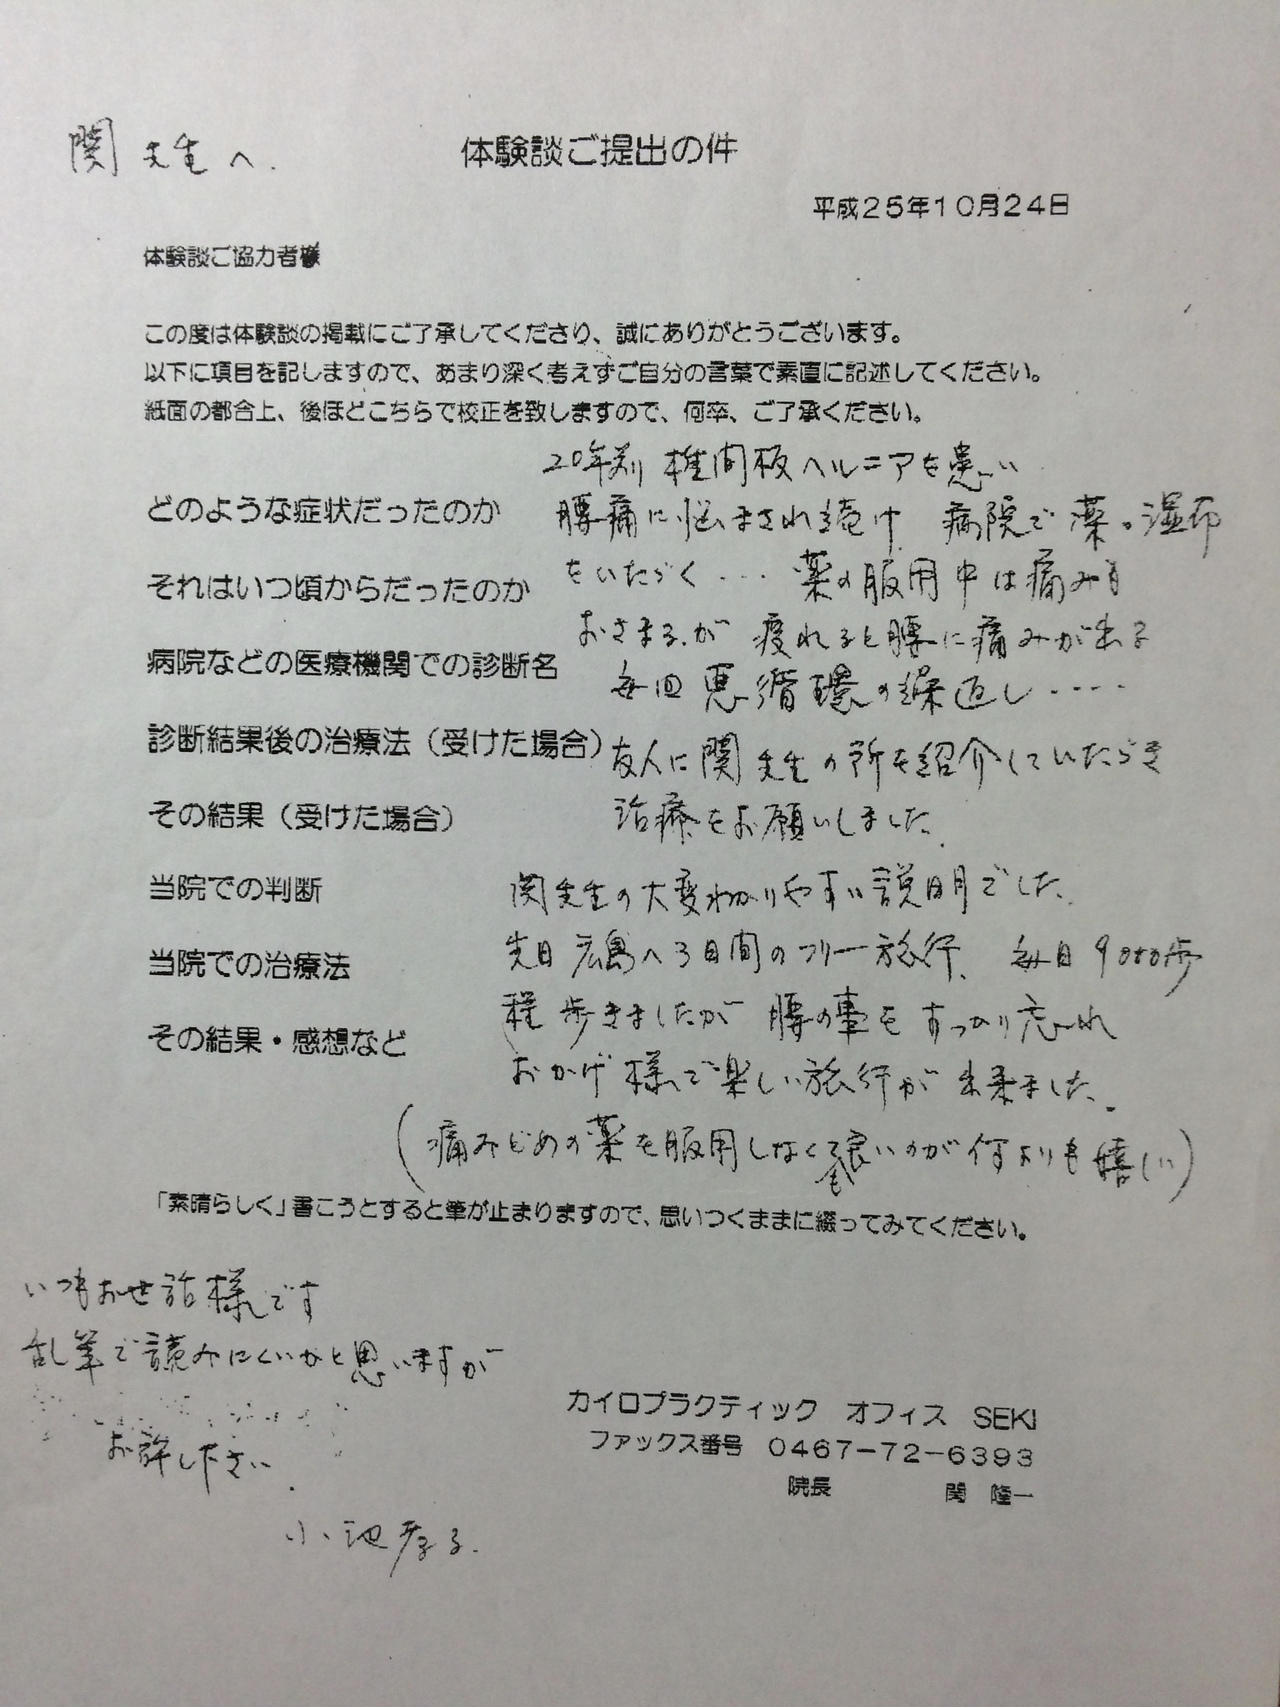 関先生へ.
体験談ご提出の件
平成25年10月24日
体験談ご協力者様
この度は体験談の掲載にご了承してくださり、誠にありがとうございます。
以下に項目を記しますので、あまり深く考えずご自分の言葉で素直に記述してください。
紙面の都合上、後ほどこちらで校正を致しますので、何卒、ご了承ください。
20年前 椎間板ヘルニアを患い
どのような症状だったのか
腰痛に悩まされ続け 病院で薬。湿布
をいただく・・・ 薬の服用中は痛みも
それはいつ頃からだったのか
おさまるが 疲れると腰に痛みが出る
病院などの医療機関での診断名
毎回 悪循環の繰返し・・・・
診断結果後の治療法（受けた場合）
友人に関先生の所を紹介していただき
その結果（受けた場合）
治療をお願いしました.
当院での判断
関先生の大変わかりやすい説明でした.
当院での治療法
先日 広島へ3日間のフリー旅行、 毎日9000歩
その結果・感想など
程歩きましたが 腰の事もすっかり忘れ
おかげ様で楽しい旅行が出来ました.
(痛みどめの薬を服用しなくても良いのが何よりも嬉しい)
「素晴らしく」書こうとすると筆が止まりますので、思いつくままに綴ってみてください。
いつもお世話様です
乱筆で読みにくいかと思いますが
お許し下さい.
カイロプラクティック オフィス SEKI
ファックス番号 0467-72-6393
院長 関 隆一
小池孝子.